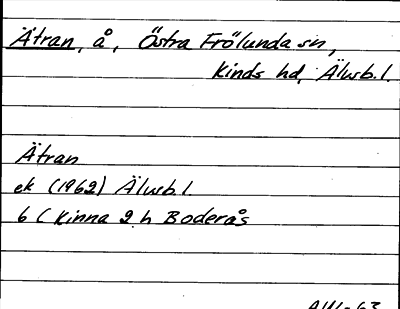 Ätran, å, Östra Frölunda sn,
Kinds hd, Älvsb. l.
Ätran
ek (1962) Älvsb. l
6 C Kinna 2 h Boderås